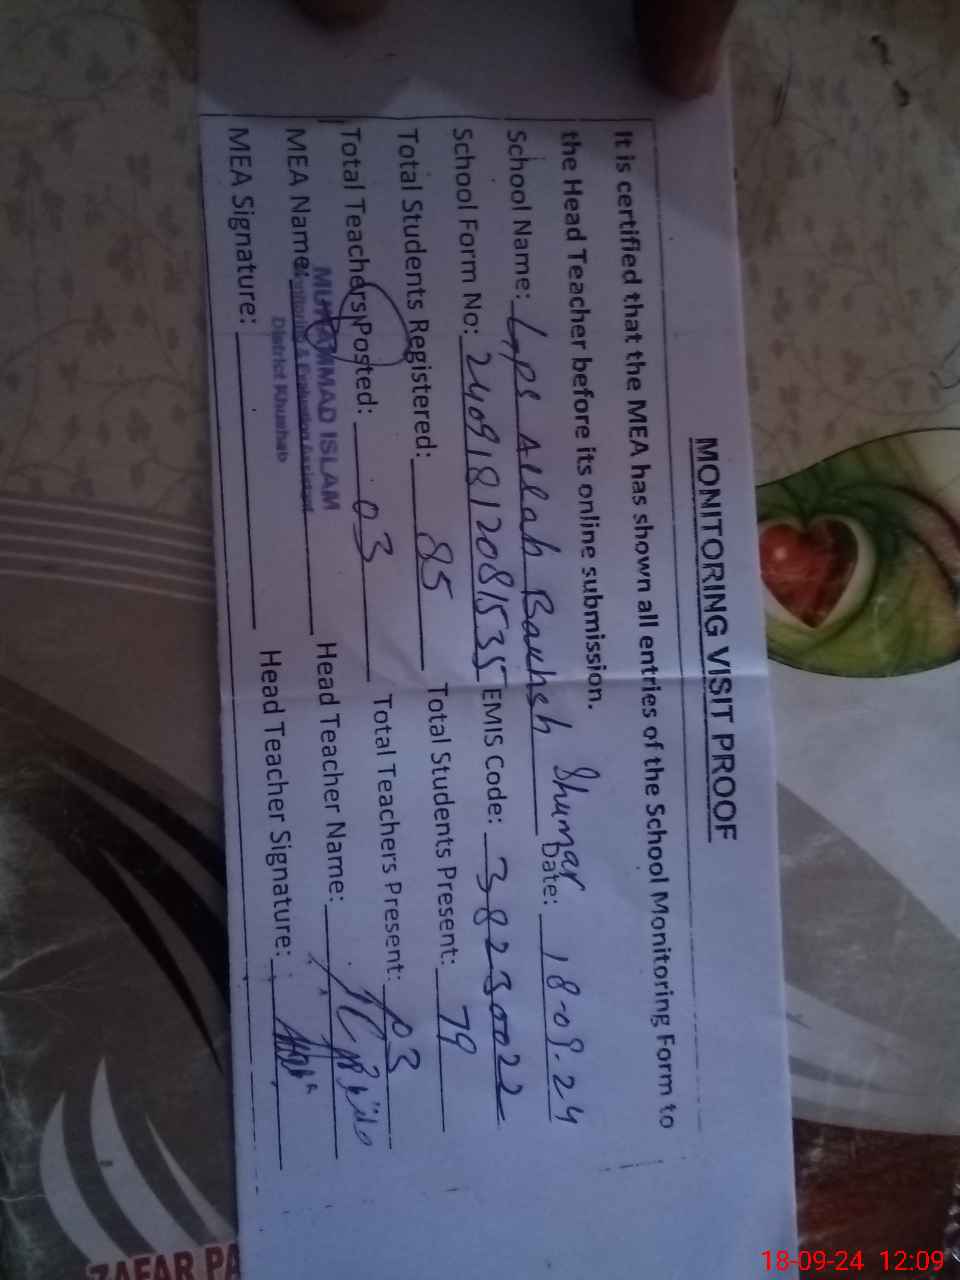 MONITORING VISIT PROOF
It is certified that the MEA has shown all entries of the School Monitoring Form to
the Head Teacher before its online submission.
School Name: Gps Allah Bauhsh Shumar Date: 18-09-24
School Form No: 24091812081535 EMIS Code: 38230022
Total Students Registered: 85 Total Students Present: 79
Total Teachers Posted: 03 Total Teachers Present: 03
MUHAMMAD ISLAM
MEA Name: Monitoring & Evaluation Assistant Head Teacher Name:
District Khushab
MEA Signature: Head Teacher Signature:
ZAFAR PA
18-09-24 12:09